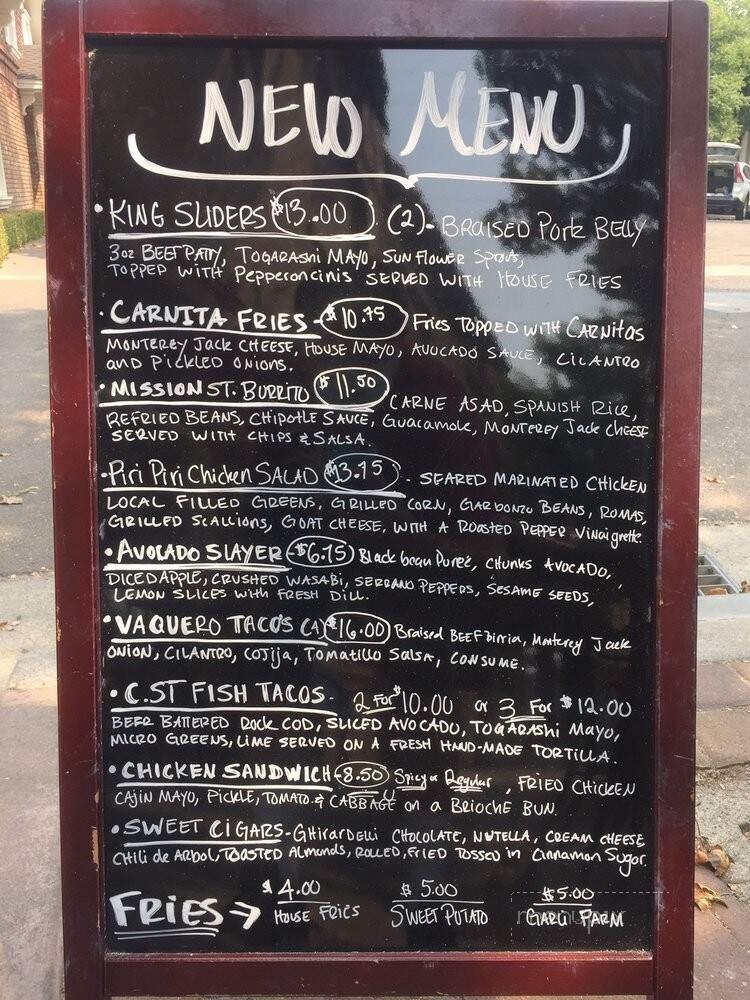 NEW MENU
• KING SLIDERS $13.00 (2)- BRAISED Pork BELLY
3oz BEEF PATTY, TOGARASHI MAYO, SUNFLOWER Sprouts,
TOPPED WITH Pepperoncinis SERVED WITH HOUSE FRIES
• CARNITA FRIES - $10.75 Fries TOPPED WITH CARNitas
MONTEREY Jack CHEESE, HOUSE MAYO, AVOCADO SAUCE, CILANTRO
and PICKLED ONIONS.
• MISSION ST. BURRITO $11.50 CARNE ASAD, SPANISH RICE,
REFRIED BEANS, CHIPOTLE SAUCE, Guacamole, MONTEREY Jack CHEESE
SERVED WITH CHIPS & SALSA.
• Piri Piri Chicken SALAD $13.75 - SEARED MARINATED CHICKEN
LOCAL FILLED GREENS, GRILLED CORN, GARBONZO BEANS, ROMAS,
GRILLED SCALLIONS, GOAT CHEESE, WITH A ROASTED PEPPER Vinaigrette.
• AVOCADO SLAYER - $6.75 Black bean Pureé, CHUNKS AVOCADO,
DICED APPLE, CRUSHED WASABI, SERRANO PEPPERS, SESAME SEEDS,
LEMON SLICES WITH FRESH DILL.
• VAQUERO TACOS (4) $16.00 Braised BEEF birria, Monterey Jack
ONION, CILANTRO, COTIJA, TOMATILLO SALSA, CONSUME.
• C.ST FISH TACOS - 2 For $10.00 or 3 For $12.00
BEER BATTERED Rock COD, SLICED AVOCADO, TOGARASHI MAYO,
MICRO GREENS, LIME SERVED ON A FRESH HAND-MADE TORTILLA.
• CHICKEN SANDWICH - 8.50 Spicy or Regular, FRIED CHICKEN
CAJIN MAYO, PICKLE, TOMATO & CABBAGE on a BRIOCHE BUN.
• SWEET CIGARS - GHIRARDELLI CHOCOLATE, NUTELLA, CREAM CHEESE
CHILI de ARBOL, TOASTED Almonds, ROLLED, FRIED TOSSED in Cinnamon Sugar.
$4.00 $5.00 $5.00
FRIES → HOUSE FRIES SWEET POTATO GARLIC PARM